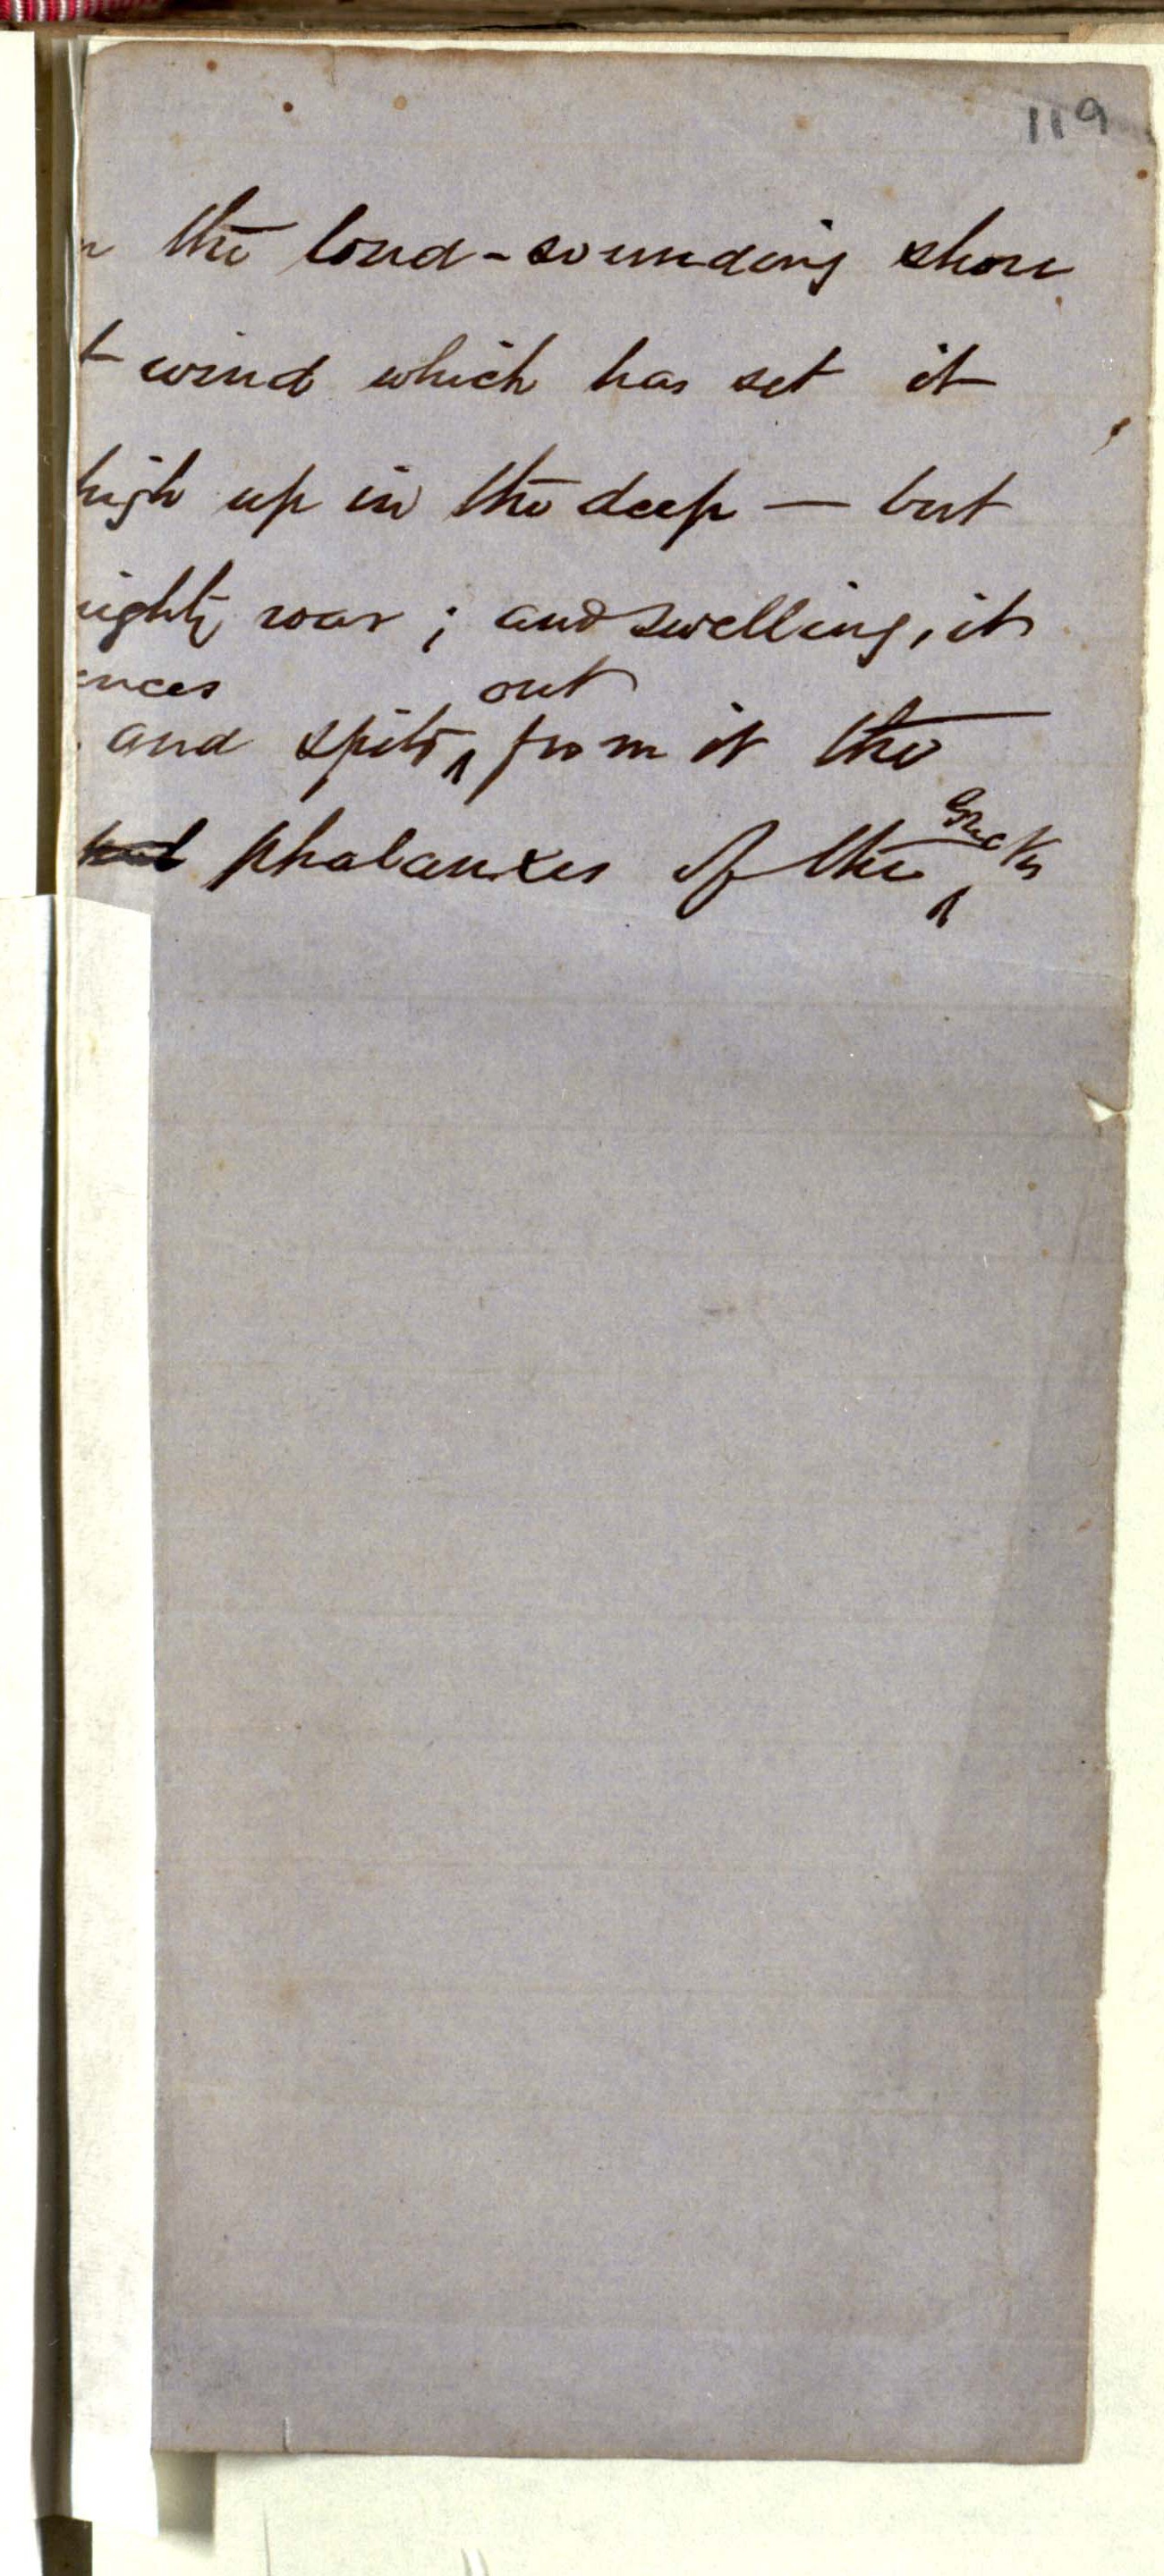 119
the loud-sounding shore
wind which has set it
high up in the deep — but
ighty roar ; and swelling, it
ences out
and spits ^ from it the
Greeks
phalanxes of the ^